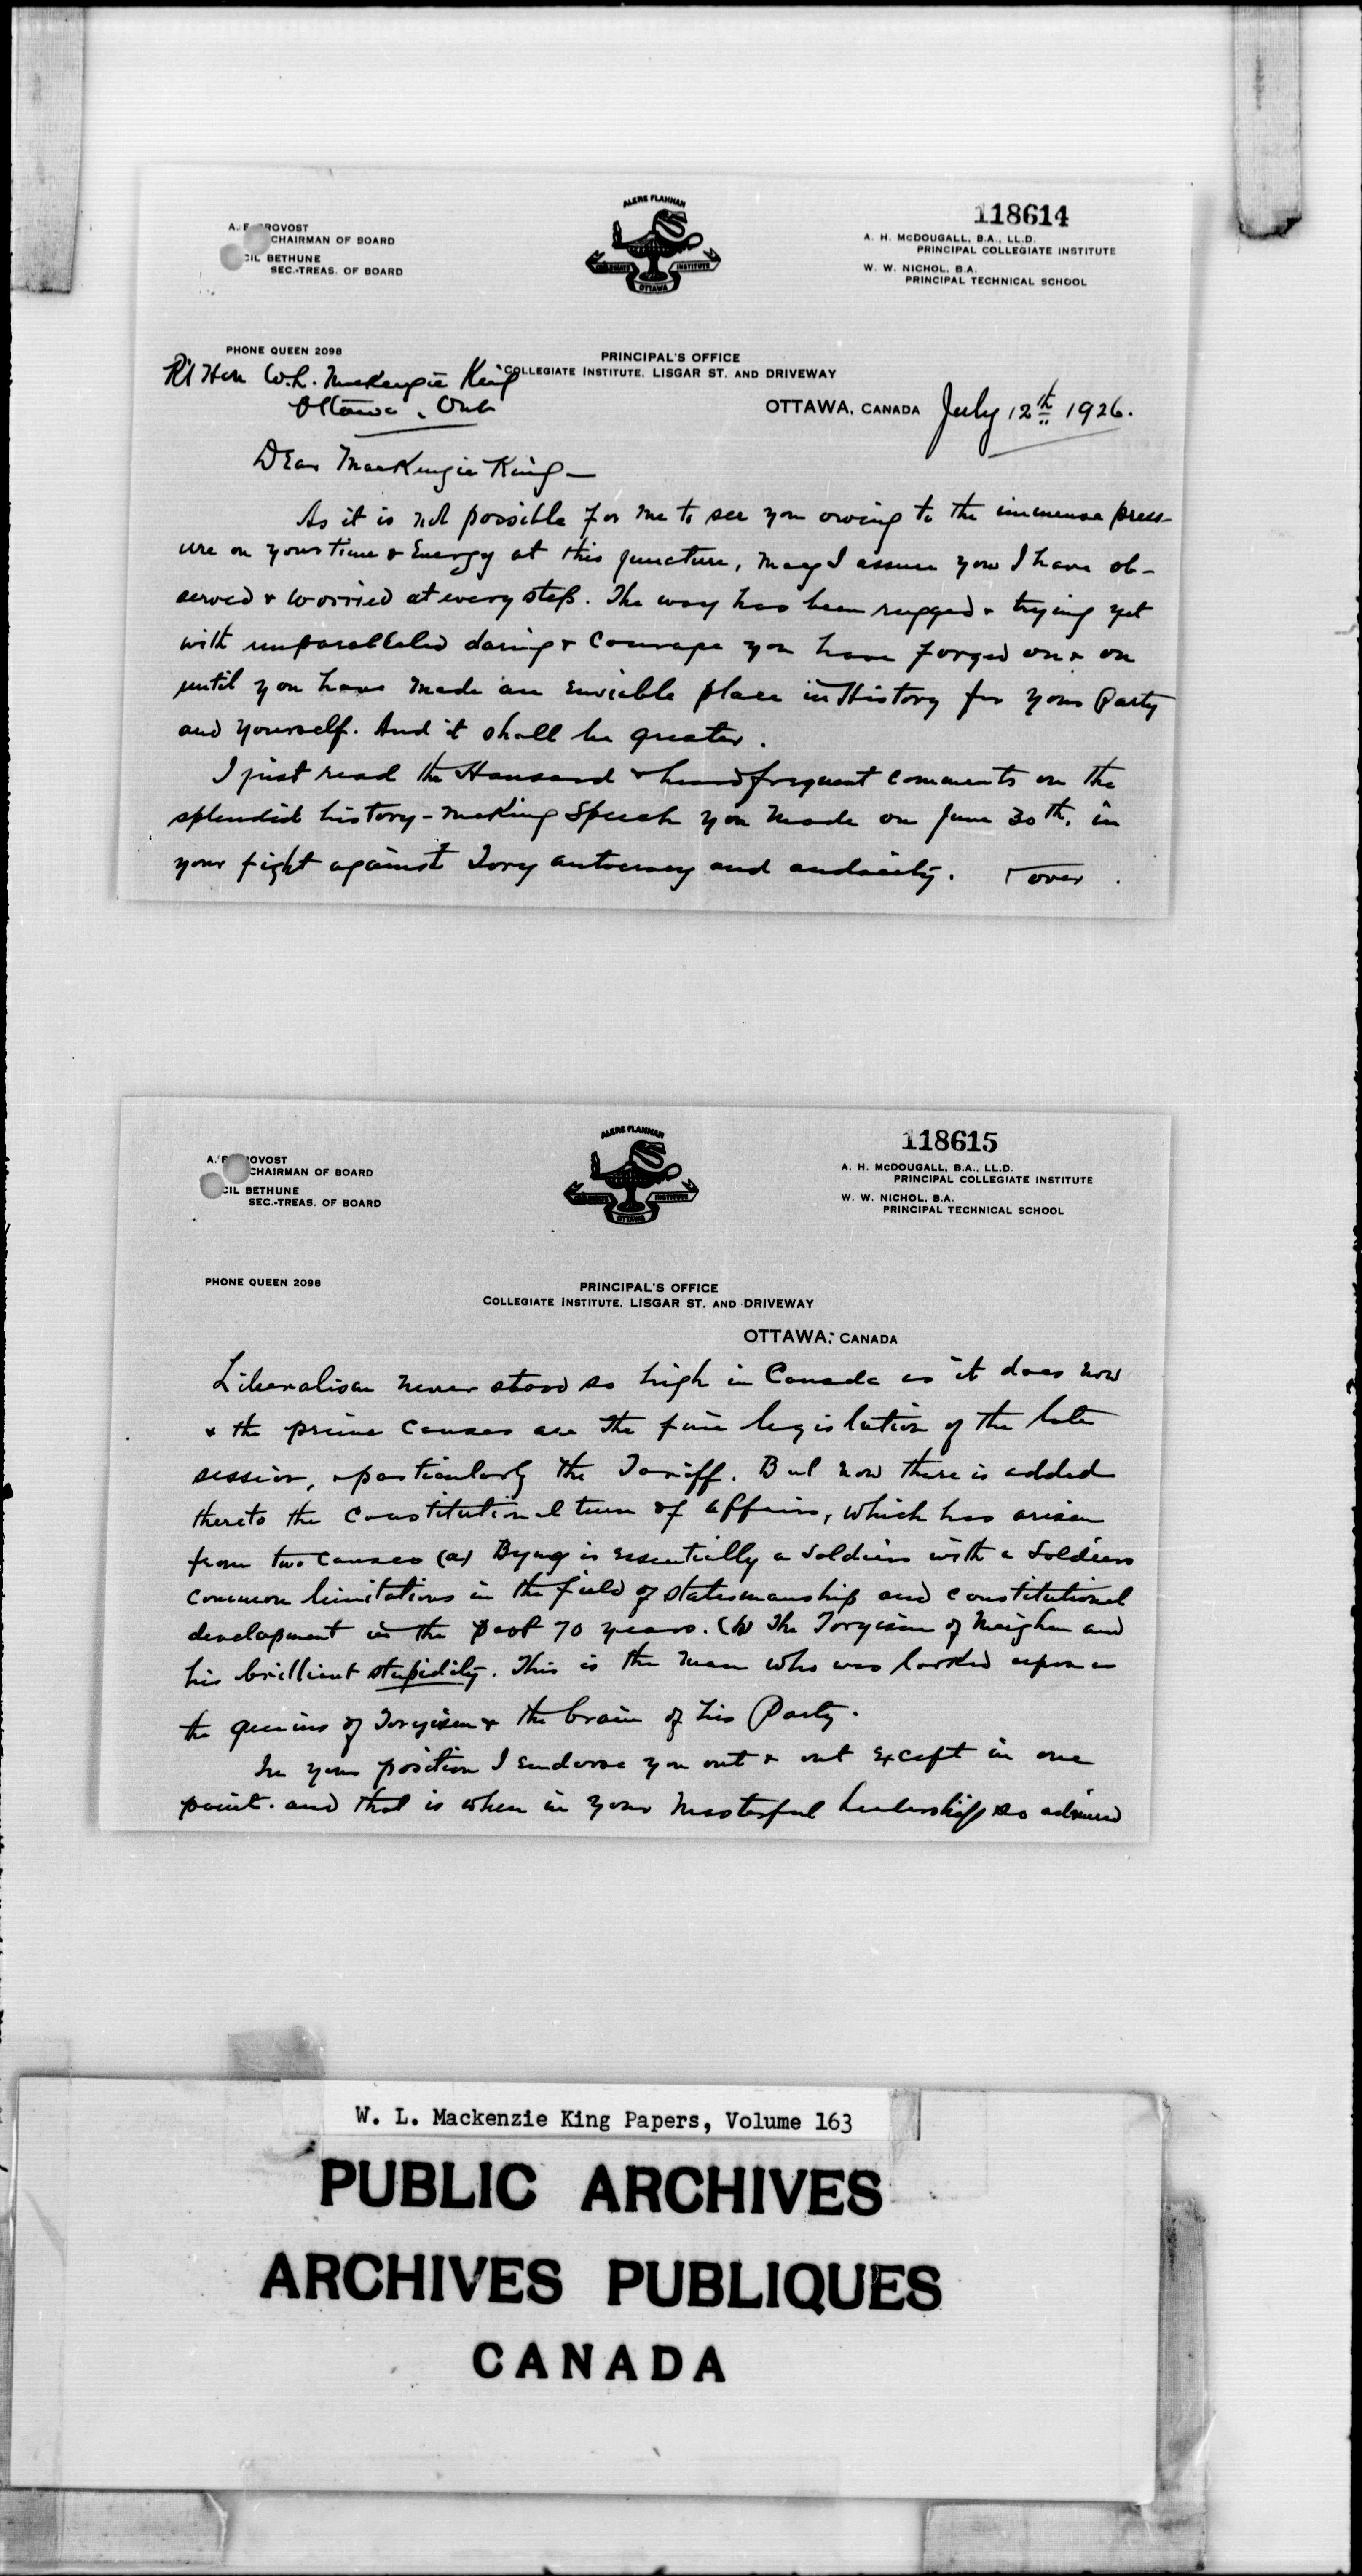 118614
A. F. PROVOST
CHAIRMAN OF BOARD
CIL BETHUNE
SEC.-TREAS. OF BOARD
ALERE FLAMMAM
COLLEGIATE INSTITUTE
OTTAWA
A. H. McDOUGALL, B.A., LL.D.
PRINCIPAL COLLEGIATE INSTITUTE
W. W. NICHOL, B.A.
PRINCIPAL TECHNICAL SCHOOL
PHONE QUEEN 2098
PRINCIPAL'S OFFICE
COLLEGIATE INSTITUTE, LISGAR ST. AND DRIVEWAY
OTTAWA, CANADA July 12th 1926.
Rt Hon W.L. MacKenzie King
Ottawa, Ont
Dear MacKenzie King—
As it is not possible for me to see you owing to the immense press-
ure on your time & Energy at this juncture, may I assure you I have ob-
served & worried at every step. The way has been rugged & trying yet
with unparalleled daring & Courage you have forged on & on
until you have made an enviable place in History for your Party
and yourself. And it shall be greater.
I just read the Hansard & heard frequent comments on the
splendid history-making Speech you made on June 30th, in
your fight against Tory autocracy and audacity. over
118615
A. F. PROVOST
CHAIRMAN OF BOARD
CIL BETHUNE
SEC.-TREAS. OF BOARD
ALERE FLAMMAM
COLLEGIATE INSTITUTE
OTTAWA
A. H. McDOUGALL, B.A., LL.D.
PRINCIPAL COLLEGIATE INSTITUTE
W. W. NICHOL, B.A.
PRINCIPAL TECHNICAL SCHOOL
PHONE QUEEN 2098
PRINCIPAL'S OFFICE
COLLEGIATE INSTITUTE, LISGAR ST. AND DRIVEWAY
OTTAWA, CANADA
Liberalism never stood so high in Canada as it does now
& the prime causes are the fine legislation of the late
session, particularly the Tariff. But now there is added
thereto the Constitutional turn of affairs, which has arisen
from two causes (a) Byng is essentially a soldier with a Soldiers
common limitations in the field of statesmanship and constitutional
development in the past 70 years. (b) The Toryism of Meighen and
his brilliant stupidity. This is the man who was looked upon as
the genius of Toryism & the brain of his Party.
In your position I endorse you out & out except in one
point. and that is when in your masterful leadership so admired
W. L. Mackenzie King Papers, Volume 163
PUBLIC ARCHIVES
ARCHIVES PUBLIQUES
CANADA